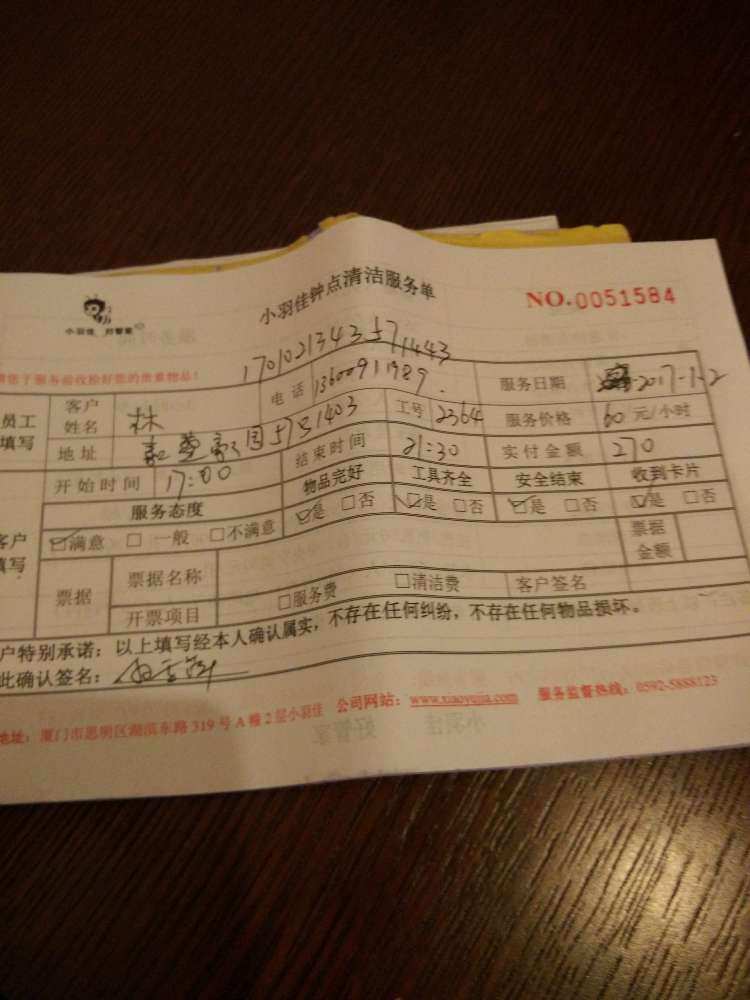 小羽佳 好管家
小羽佳钟点清洁服务单
NO.0051584
17010213435711443
员工填写
客户姓名 林 电话 13600911989 服务日期 2017-1-2
地址 57号1403 工号 2364 服务价格 60 元/小时
开始时间 17:00 结束时间 21:30 实付金额 270
服务态度 物品完好 工具齐全 安全结束 收到卡片
☑满意 □一般 □不满意 ☑是 □否 ☑是 □否 ☑是 □否 ☑是 □否
客户填写
票据 票据名称 票据金额
开票项目 □服务费 □清洁费 客户签名
户特别承诺：以上填写经本人确认属实，不存在任何纠纷，不存在任何物品损坏。
此确认签名：
地址：厦门市思明区湖滨东路319号A幢2层小羽佳 公司网站：www.xiaoyujia.com 服务监督热线：0592-5888123